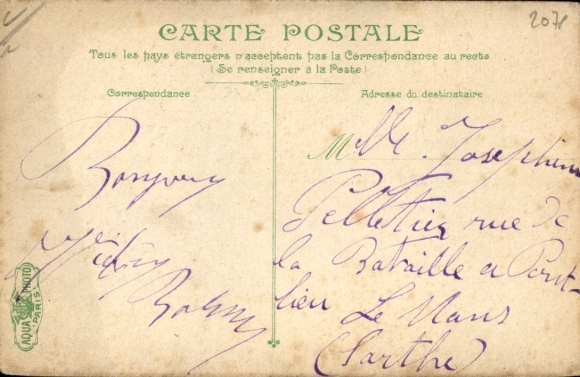 207
CARTE POSTALE
Tous les pays étrangers n'acceptent pas la Correspondance au recto
(Se renseigner à la Poste)
Correspondance
Adresse du destinataire
Mlle. Josephine
Pelletier rue de
la Bataille a Pont-
lieu Le Mans
(Sarthe)
Bonjour
AQUA PHOTO
PARIS